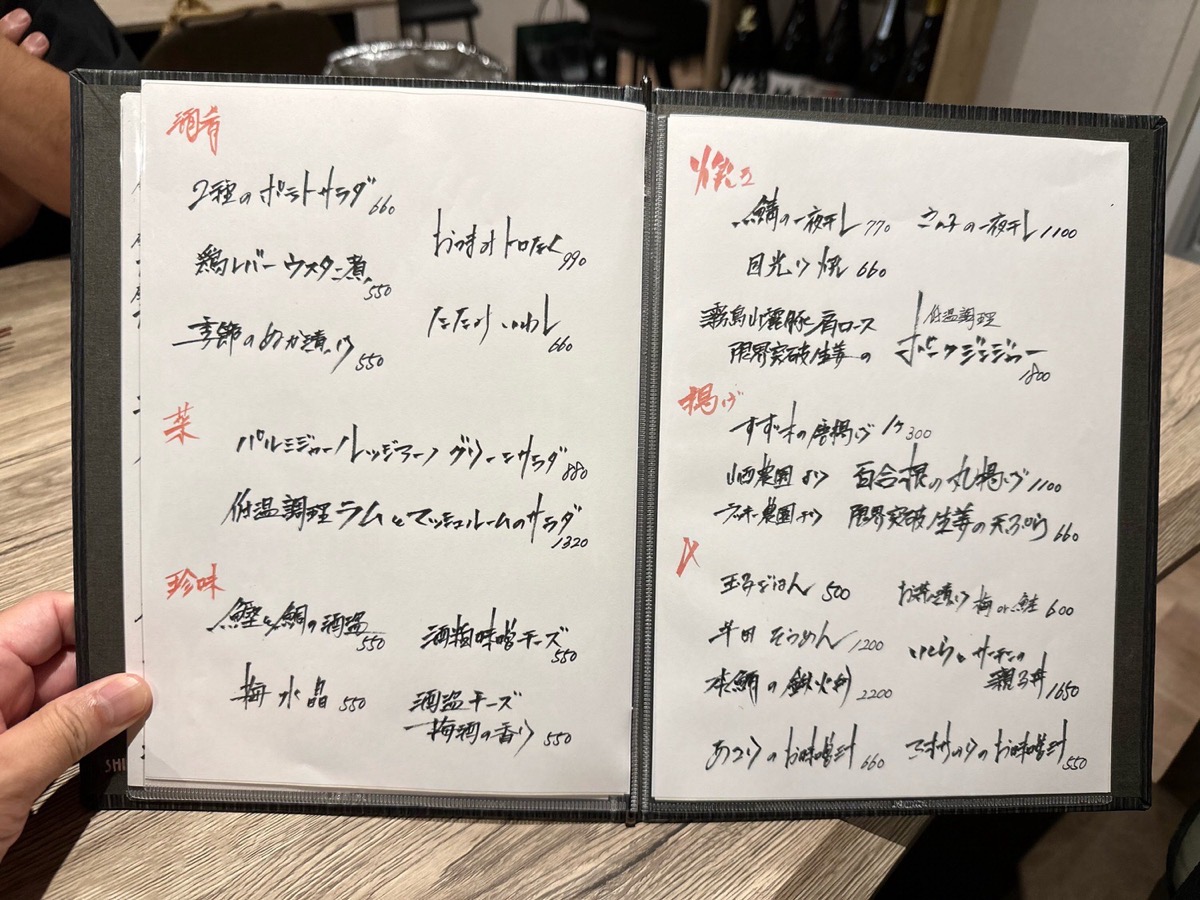 酒肴
2種のポテトサラダ 660
おつまみトロたく 990
鶏レバーウスター煮 550
たたみいわし 660
季節のぬか漬け 550
菜
パルミジャーノレッジャーノグリーンサラダ 880
低温調理ラムとマッシュルームのサラダ 1320
珍味
鰹と鯛の酒盗 550
酒粕味噌チーズ 550
梅水晶 550
酒盗チーズ
梅酒の香り 550
焼き
鯖の一夜干し 770
の一夜干し 1100
目光り焼 660
霧島山麓豚肩ロース
限界突破生姜の
低温調理
ポークジンジャー
1800
揚げ
の唐揚げ 1ヶ 300
山西農園より 百合根の丸揚げ 1100
農園より 限界突破生姜の天ぷら 660
〆
玉子ごはん 500
お茶漬け 梅or鮭 600
半田そうめん 1200
いくらとサーモンの
親子丼 1650
本鮪の鉄火丼 2200
あさりのお味噌汁 660
あおさのりのお味噌汁 550
SHI